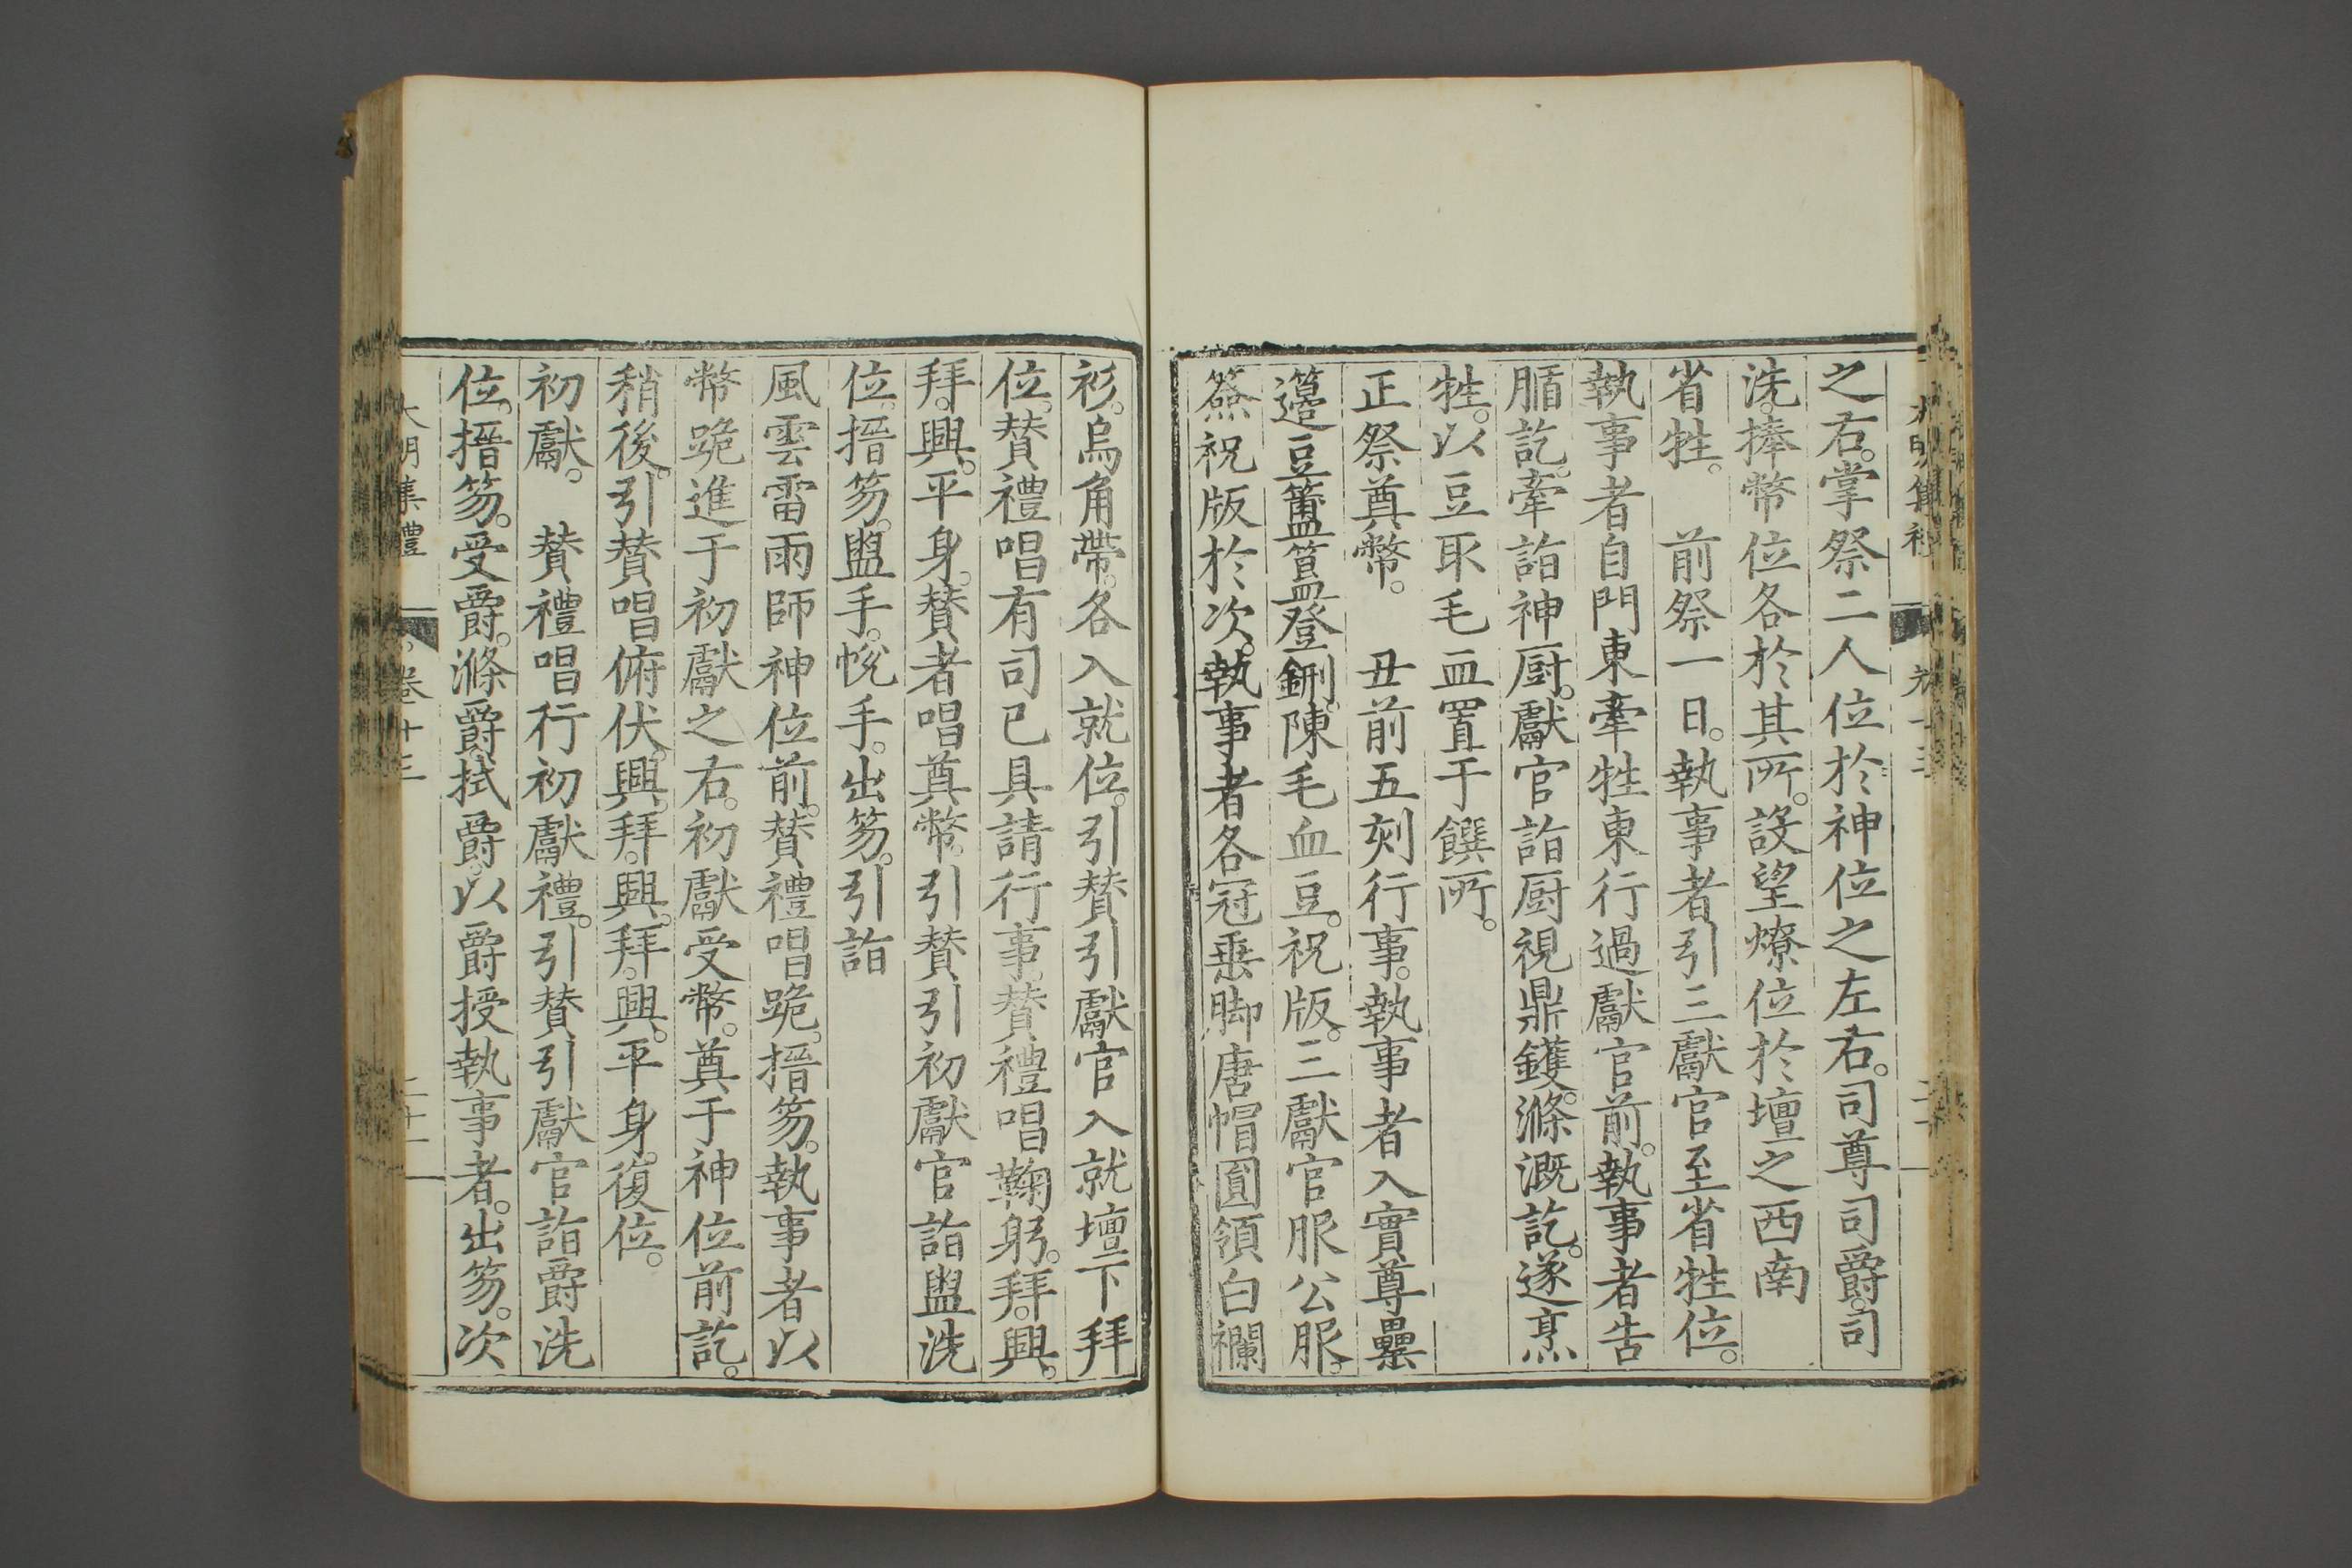 之右。掌祭二人位於神位之左右。司尊司爵。司
洗。捧幣位各於其所。設望燎位於壇之西南
省牲。　前祭一日。執事者引三獻官至省牲位。
執事者自門東牽牲東行過獻官前。執事者告
腯訖。牽詣神厨。獻官詣厨視鼎鑊。滌溉訖。遂烹
牲。以豆取毛血置于饌所。
正祭奠幣。　丑前五刻行事。執事者入實尊罍
籩豆簠簋登鉶。陳毛血豆。祝版。三獻官服公服。
簽祝版於次。執事者各冠垂脚唐帽圓領白襴
衫。烏角帶。各入就位。引贊引獻官入就壇下拜
位。贊禮唱有司已具請行事。贊禮唱鞠躬。拜。興。
拜。興。平身。贊者唱奠幣。引贊引初獻官詣盥洗
位。搢笏。盥手。帨手。出笏。引詣
風雲雷雨師神位前。贊禮唱跪。搢笏。執事者以
幣跪進于初獻之右。初獻受幣。奠于神位前訖。
稍後。引贊唱俯伏。興。拜。興。拜。興。平身。復位。
初獻。　贊禮唱行初獻禮。引贊引獻官詣爵洗
位。搢笏。受爵。滌爵拭爵。以爵授執事者。出笏。次
大明集禮　卷十三　二十一